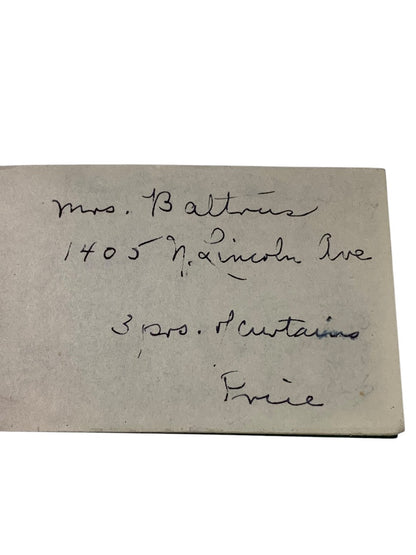 Mrs. Baltrus
1405 N. Lincoln Ave
3 prs. of curtains
Price